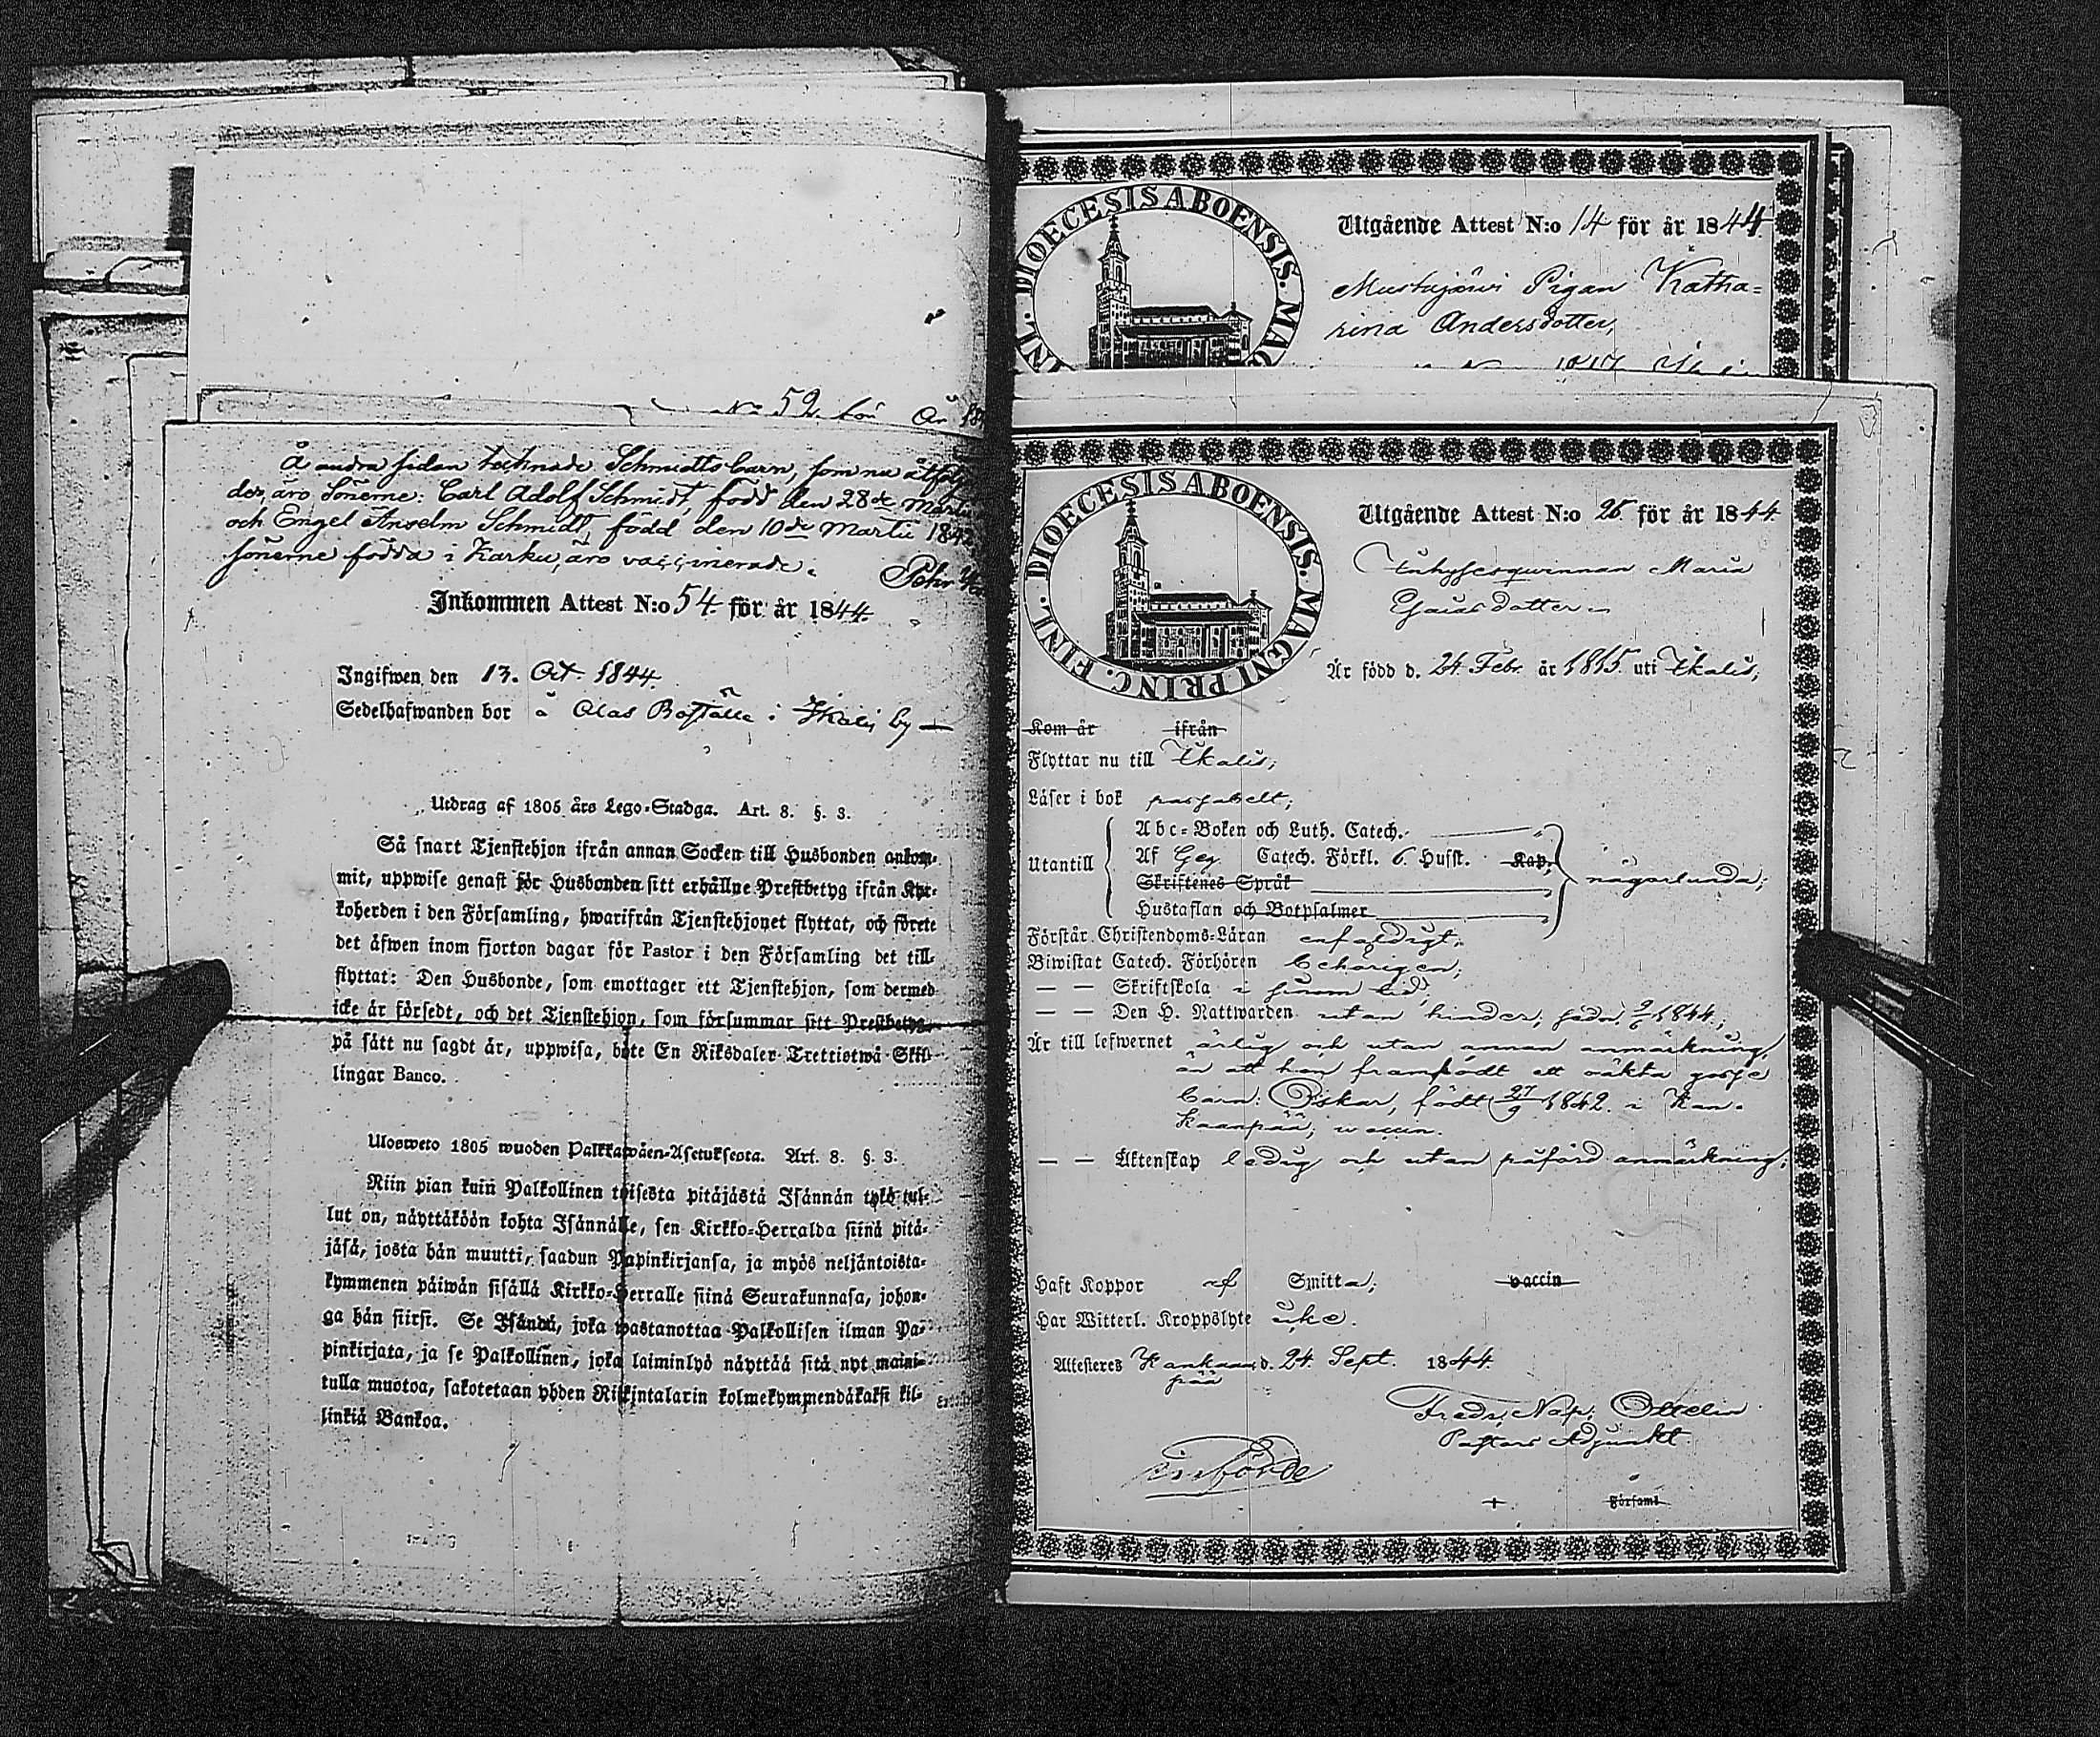 No 52. för År
Å andra sidan tecknade Schmidts barn, som nu åtfölj
des, äro Sönerne: Carl Adolf Schmidt, född den 28de Martii
och Engel Anselm Schmidt, född den 10de Martii 1842
Sönerne födda i Karku, äro vaccinerade.
Inkommen Attest N:o 54 för år 1844.
Ingifwen den 13. Oct. 1844.
Sedelhafwanden bor å Olas Boställe i Ikalis by —
Utdrag af 1805 års Lego-Stadga. Art. 8. §. 3.
Så snart Tjenstehjon ifrån annan Socken till Husbonden ankom-
mit, uppwise genast för Husbonden sitt erhållne Prestbetyg ifrån Kyr-
koherden i den Församling, hwarifrån Tjenstehjonet flyttat, och förete
det äfwen inom fjorton dagar för Pastor i den Församling det till-
flyttat: Den Husbonde, som emottager ett Tjenstehjon, som dermed
icke är försedt, och det Tjenstehjon, som försummar sitt Prestbetyg
på sätt nu sagdt är, uppwisa, böte En Riksdaler Trettiotwå Skil-
lingar Banco.
Ulosweto 1805 wuoden Palkkawäen-Asetuksesta. Art. 8. §. 3.
Niin pian kuin Palkollinen toisesta pitäjästä Isännän tykö tul-
lut on, näyttäköön kohta Isännälle, sen Kirkko-Herralda siinä pitä-
jäsä, josta hän muutti, saadun Papinkirjansa, ja myös neljäntoista-
kymmenen päiwän sisällä Kirkko-Herralle siinä Seurakunnasa, johon-
ga hän siirsi. Se Isändä, joka wastanottaa Palkollisen ilman Pa-
pinkirjata, ja se Palkollinen, joka laiminlyö näyttää sitä nyt maini-
tulla muotoa, sakotetaan yhden Riikintalarin kolmekymmendäkaksi kil-
linkiä Bankoa.
DIOECESIS ABOENSIS. MAG
INL.
Utgående Attest N:o 14 för år 1844.
Mustajärvi Pigan Katha-
rina Andersdotter,
DIOECESIS ABOENSIS. MAGNI PRINC. FINL.
Utgående Attest N:o 26 för år 1844.
Inhysesqwinnan Maria
Esaiasdotter
Är född d. 24. Febr. år 1815. uti Ikalis;
Kom år ifrån
Flyttar nu till Ikalis;
Läser i bok passabelt;
Abc-Boken och Luth. Catech.
Utantill Af Catech. Förkl. 6. Hufst. Kap. någorlunda;
Skriftenes Språk
Hustaflan och Botpsalmer
Förstår Christendoms-Läran enfaldigt;
Biwistat Catech. Förhören behörigen;
— — Skriftskola i sinom tid;
— — Den H. Nattwarden utan hinder, sedn. 9/6 1844;
Är till lefwernet ärlig och utan annan anmärkning,
än att hon framfödt ett oäkta gosse
barn: Oskar, födt 27/9 1842. i Kan-
kaanpää; vaccin.
— — Äktenskap ledig och utan påförd anmärkning;
Haft Koppor af Smitta; vaccin
Har Witterl. Kroppslyte icke.
Attesteras Kankaan- d. 24. Sept. 1844
pää
Fredr. Nap. Ottelin
Pastors Adjunkt.
införde
Församl